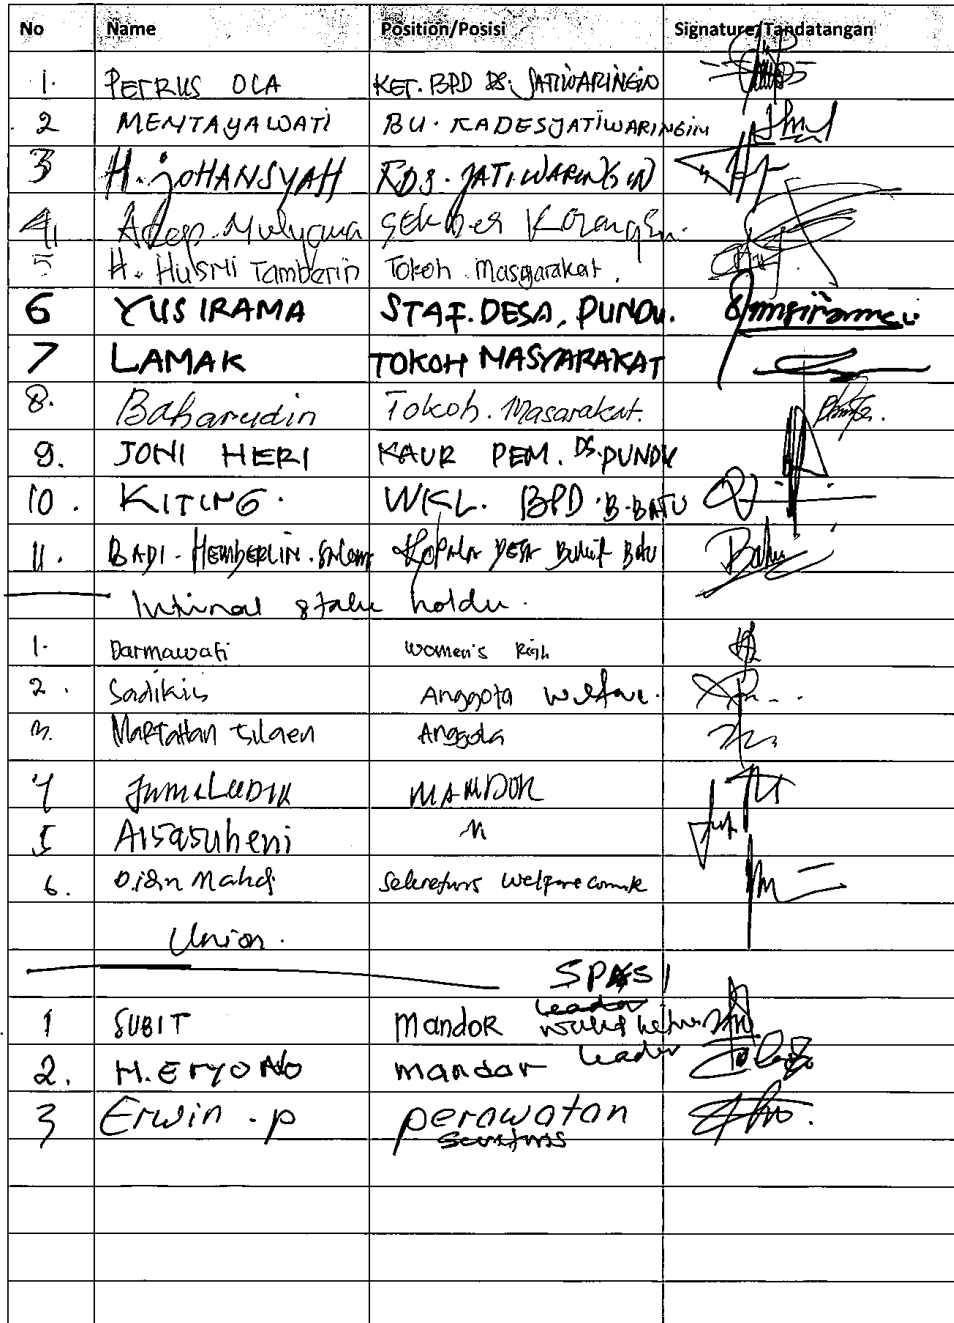 No Name Position/Posisi Signature/Tandatangan
1. PETRUS OLA KET. BPD DS. JATIWARINGIN
2 MENTAYAWATI BU. KADESJATIWARINGIN
3 H. JOHANSYAH KDS. JATIWARINGIN
4. Adep. Mulyana
5 H. Husni Tamberin Tokoh Masyarakat.
6 YUS IRAMA STAF. DESA, PUNDU.
7 LAMAK TOKOH MASYARAKAT
8. Baharudin Tokoh. Masarakat.
9. JONI HERI KAUR PEM. DS. PUNDU
10. KITING. WKL. BPD B.BATU
11. BADI. HEMBERLIN. Kepala DESA Bukit Batu
stake holder.
1. Darmawati women's
2. Sadikin Anggota welfare.
3. Martahan Silaen Anggota
4 JUMALUDIN MANDOR
5 Arsasuheni 〃
6. Dian Mahdi Sekretaris welfare
Union.
SPSI
leader
1 SUBIT Mandor
leader
2. H. ERYONO mandor
3 Erwin . p perawatan